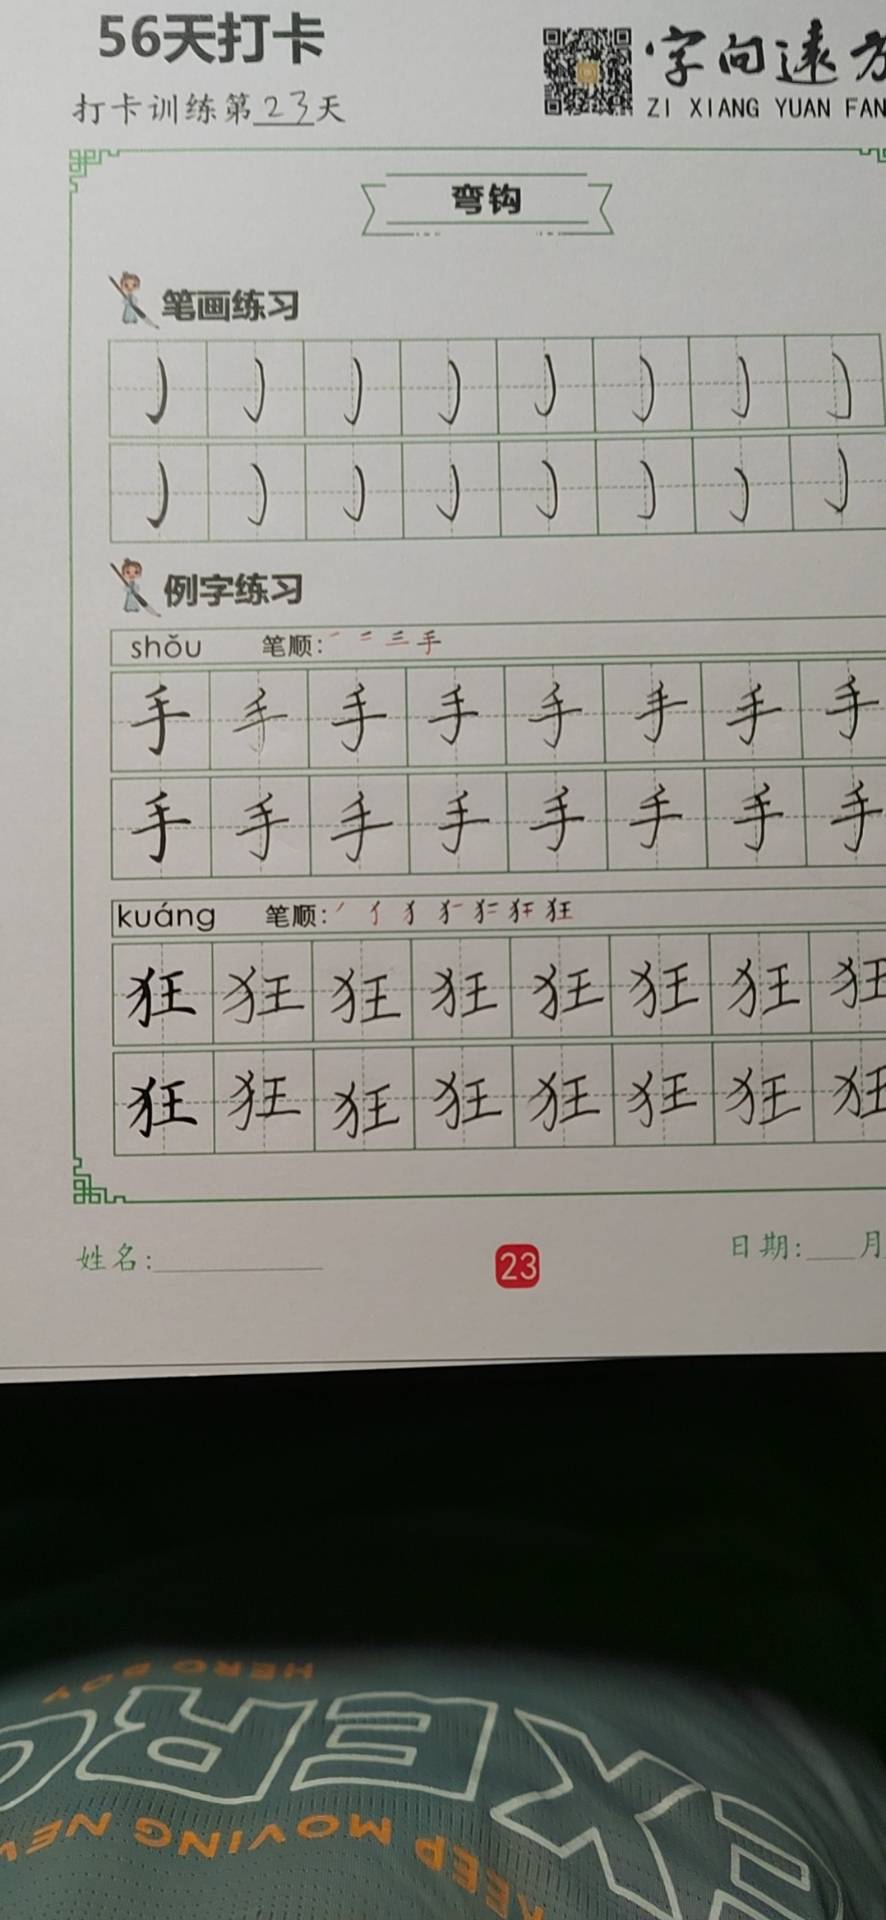 56天打卡
字向远方
ZI XIANG YUAN FAN
打卡训练第23天
弯钩
笔画练习
例字练习
shǒu 笔顺: 手
手 手 手 手 手 手 手 手
手 手 手 手 手 手 手 手
kuáng 笔顺: 狂
狂 狂 狂 狂 狂 狂 狂 狂
狂 狂 狂 狂 狂 狂 狂 狂
姓名: 23 日期: 月
HERO BOY
EEP MOVING NEV